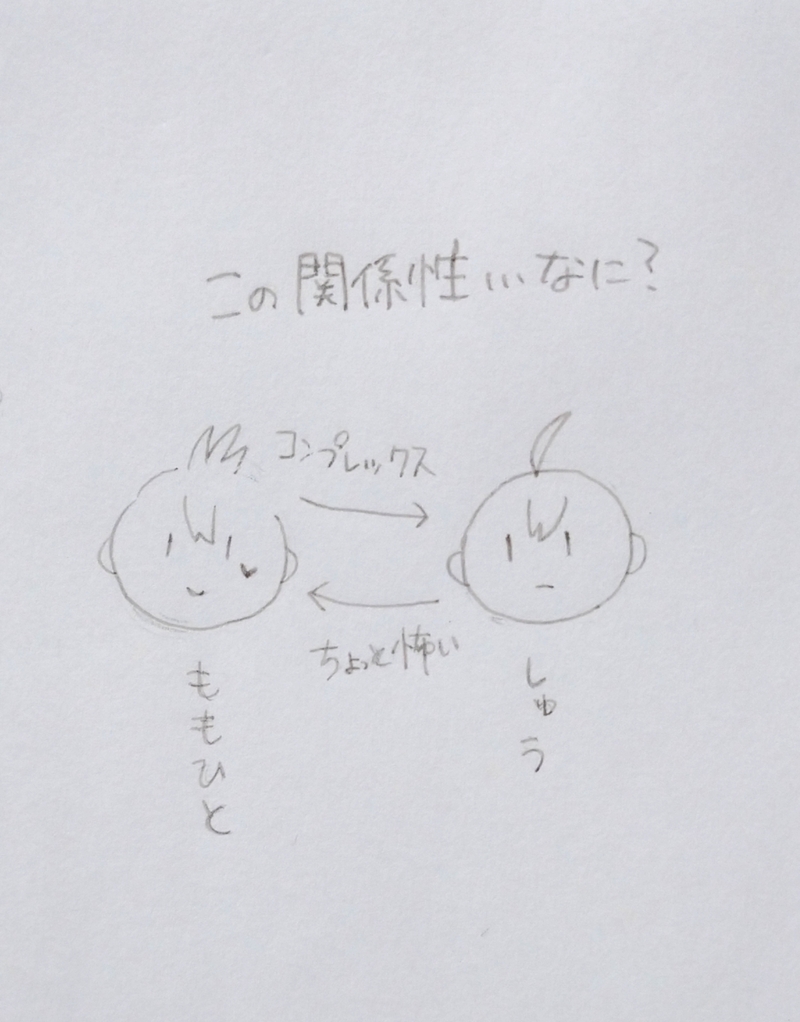 この関係性…なに?
コンプレックス
ちょっと怖い
ももひと
しゅう